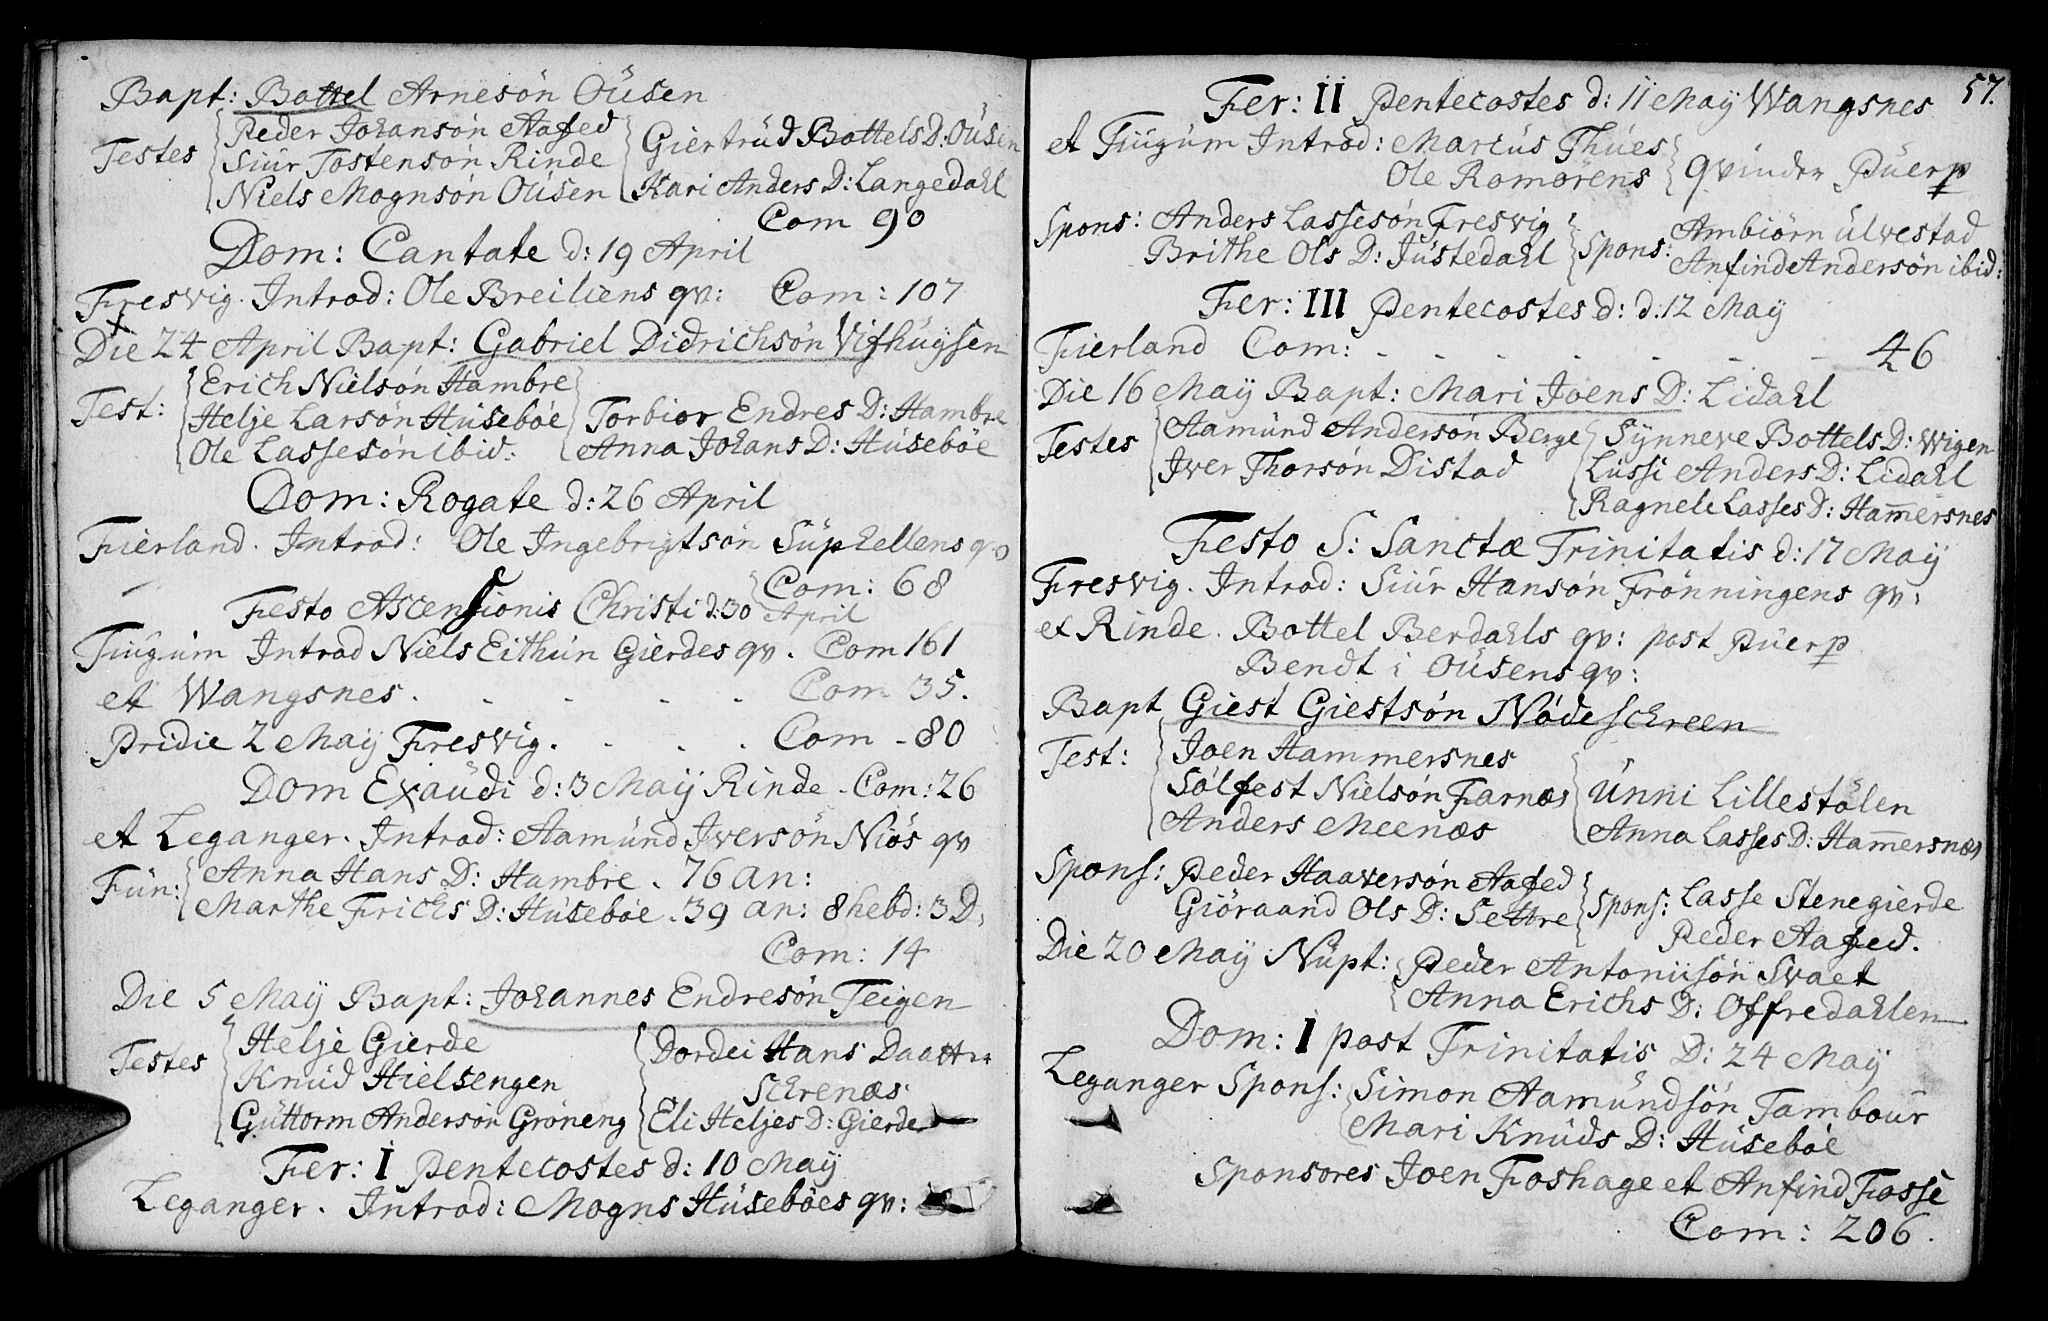 Bapt: Bottel Arnesön Oüsen
Testes Peder Johansön Aafed
Siür Tostensön Rinde
Niels Mognsön Oüsen
Giertrüd Bottels D: Oüsen
Kari Anders D: Langedahl
Com 90
Dom: Cantate d: 19 April
Fresvig. Introd: Ole Breiliens qv: Com: 107
Die 24 April Bapt: Gabriel Didrichsön Vifhüÿsen
Test: Erich Nielsön Hambre
Helje Larsön Hüseböe
Ole Lassesön ibid:
Torbior Endres D: Hambre
Anna Johans D: Hüseböe
Dom: Rogate d: 26 April
Fierland. Introd: Ole Ingebrigtsön Süphellens qv
Com: 68
Festo Ascensionis Christi d: 30 April
Tiügüm Introd Niels Eithün Gierdes qv. Com 161
et Wangsnes. Com 35.
Pridie 2 Maÿ Fresvig. Com - 80
Dom Exaüdi d: 3 Maÿ Rinde - Com: 26
et Leganger. Introd: Aamünd Iversön Niös qv
Fün: Anna Hans D: Hambre. 76 an:
Marthe Frichs D: Hüseböe. 39 an: 8 hebd: 3 D:
Com: 14
Die 5 Maÿ Bapt: Johannes Endresön Teigen
Testes Helje Gierde
Knüd Hielsengen
Güttorm Andersön Gröneng
Dordei Hans Daatter
Skrenæs
Eli Heljes D: Gierde
Fer: I Pentecostes d: 10 Maÿ
Leganger. Introd: Mogns Hüseböes qv:
57.
Fer: II Pentecostes d: 11 Maÿ Wangsnes
et Tiügüm Introd: Marcüs Thües
Ole Romörens
qvinder Püerp
Spons: Anders Lassesön Fresvig
Brithe Ols D: Jüstedahl
Spons: Ambiörn Ulvestad
Anfind Andersön ibid:
Fer: III Pentecostes d: d: 12 Maÿ
Fierland Com: - - - - - - - 46
Die 16 Maÿ Bapt: Mari Joens D: Lidahl
Testes Aamünd Andersön Berge
Iver Thorsön Distad
Sÿnneve Bottels D: Wigen
Lüssi Anders D: Lidahl
Ragnele Lasses D: Ham̅ersnes
Festo S: Sanctæ Trinitatis d: 17 Maÿ
Fresvig. Introd: Siür Hansön Frönningens qv:
et Rinde. Bottel Berdahls qv: post püerp
Bendt i Oüsens qv:
Bapt Giest Giestsön Nödeskreen
Test: Joen Hammersnes
Sölfest Nielsön Farnæs
Anders Meenæs
Ünni Lillestölen
Anna Lasses D: Ham̅ersnæs
Spons: Peder Haaversön Aafed
Giöraand Ols D: Settre
Spons: Lasse Stenegierde
Peder Aafed.
Die 20 Maÿ Nüpt: Peder Antoniisön Svaet
Anna Erichs D: Offredahlen
Dom: I post Trinitatis D: 24 Maÿ
Leganger Spons: Simon Aamündsön Tambour
Mari Knüds D: Hüseböe
Sponsores Joen Foshage et Anfind Fosse
Com: 206.